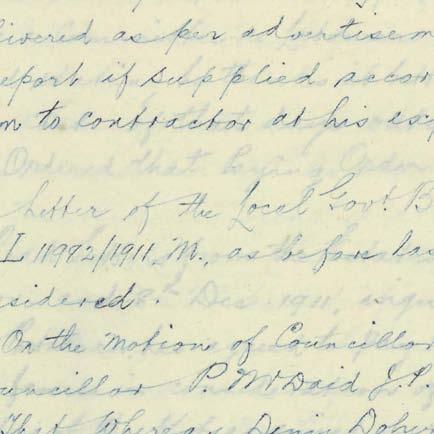 livered as per advertisem
eport if supplied accor
m to contractor at his exp
Ordered that
Letter of the Local Govt. B
L 11982/1911, M., as before las
sidered.
On the Motion of Councillor
uncillor P. McDaid J.P.
That Whereas Denis Doher